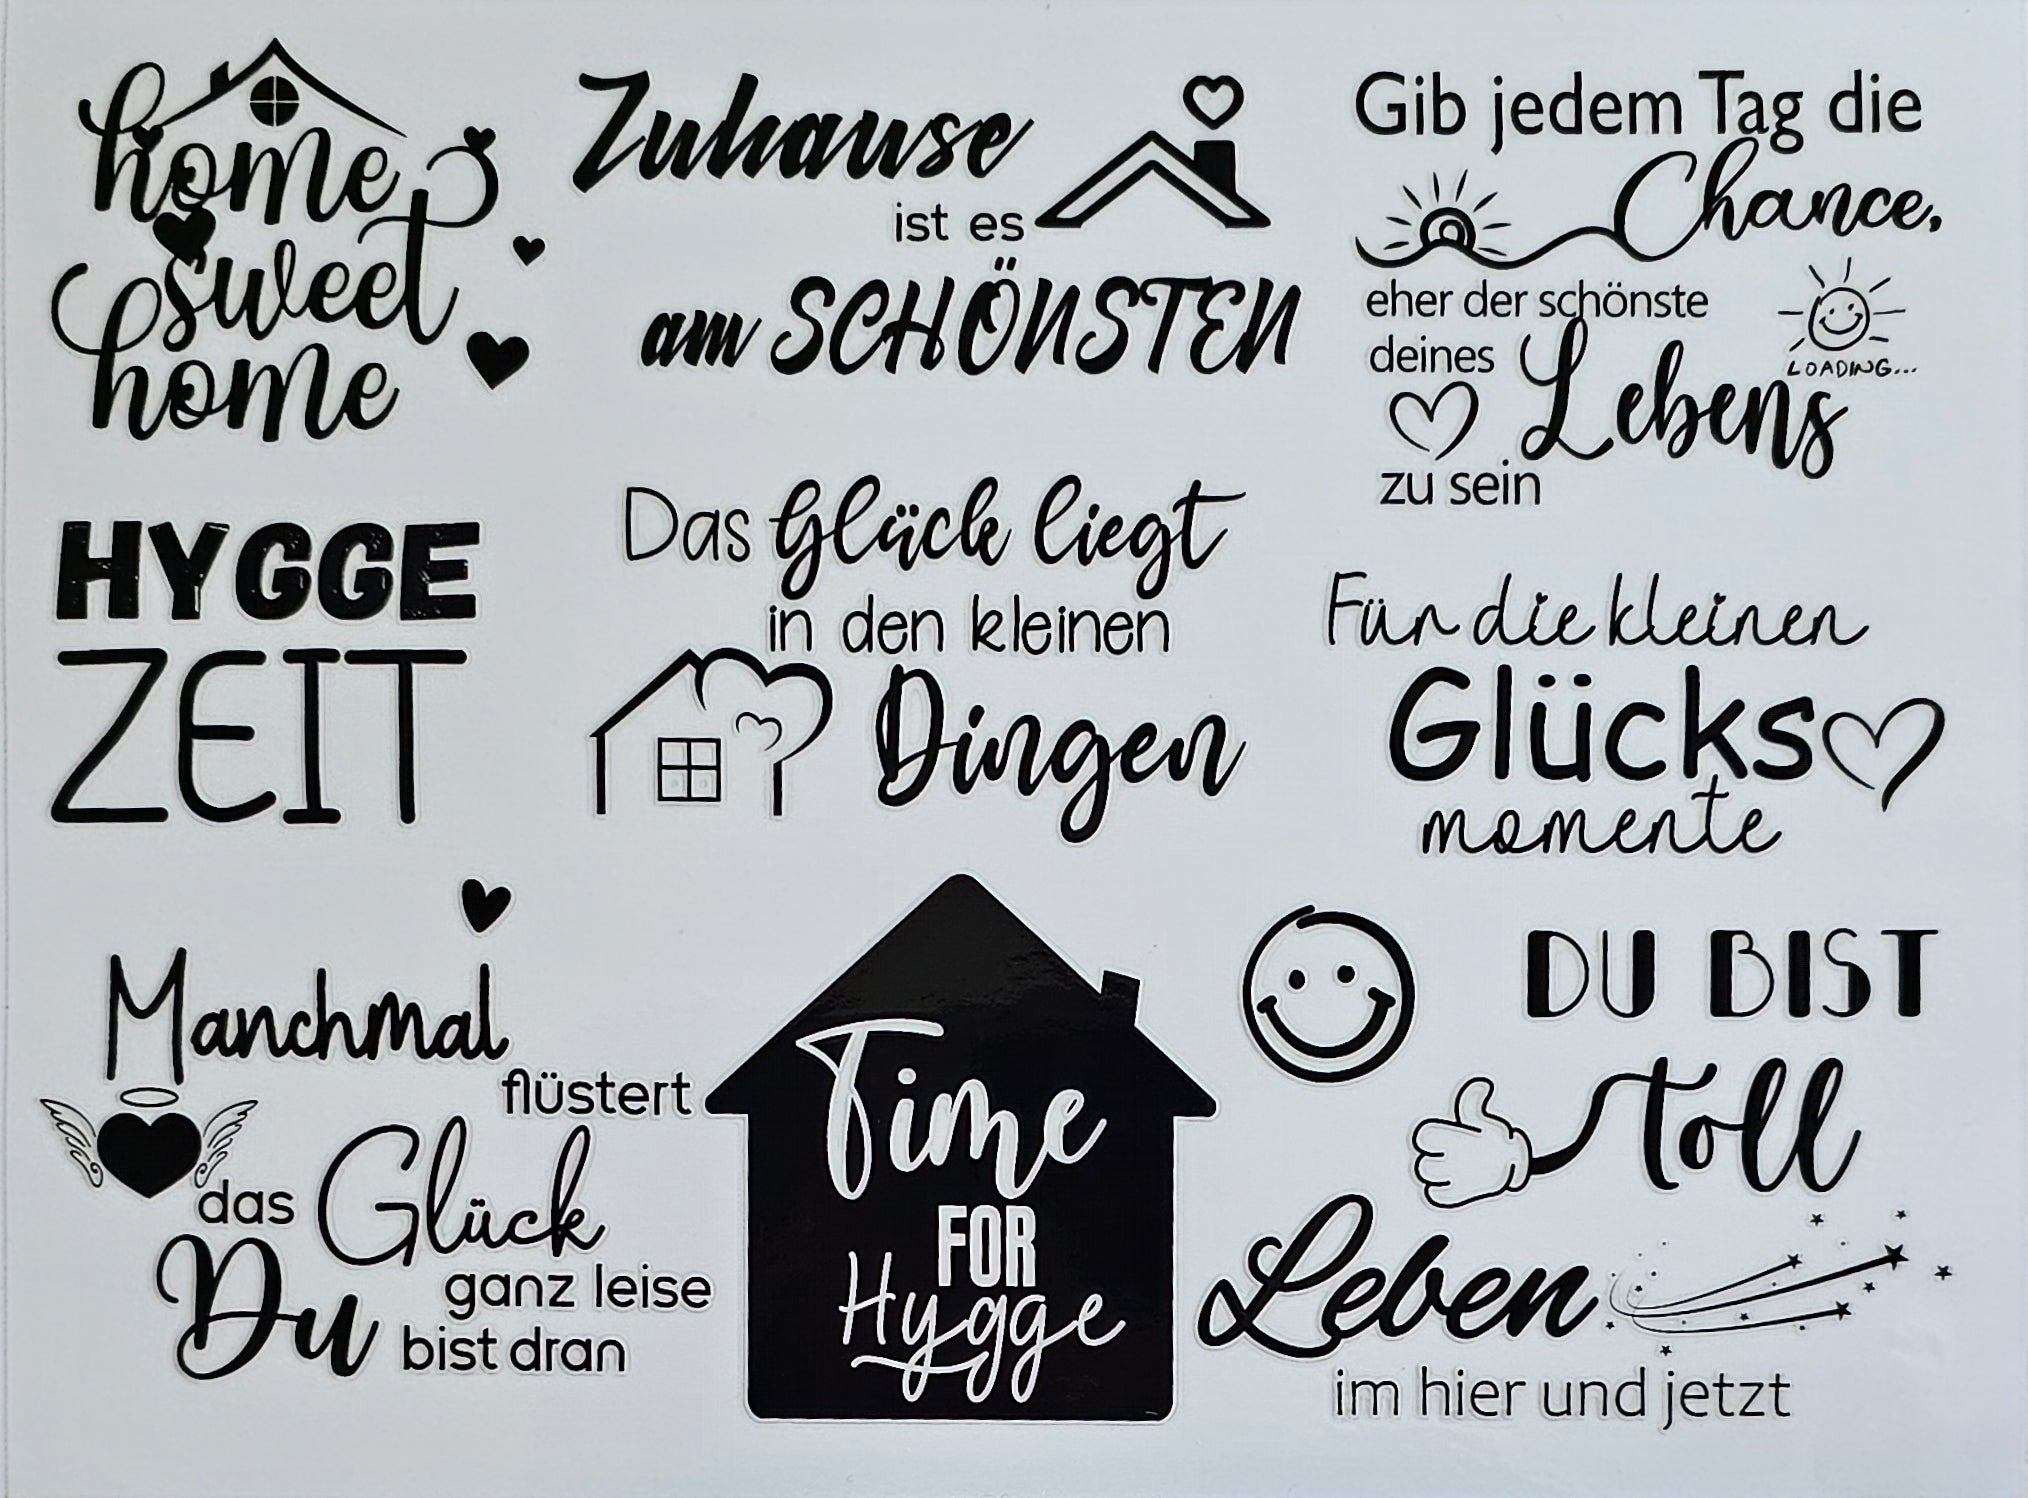 home
sweet
home
Zuhause
ist es
am SCHÖNSTEN
Gib jedem Tag die
Chance,
eher der schönste
deines Lebens
LOADING...
zu sein
HYGGE
ZEIT
Das Glück liegt
in den kleinen
Dingen
Für die kleinen
Glücks
momente
Manchmal
flüstert
das Glück
ganz leise
Du bist dran
Time
FOR
Hygge
DU BIST
toll
Leben
im hier und jetzt